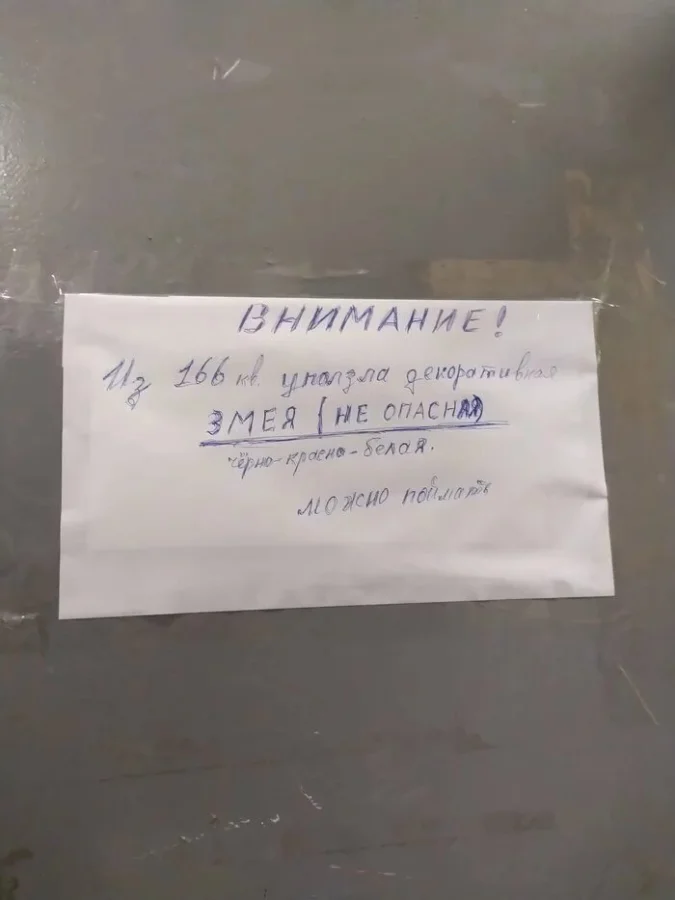 ВНИМАНИЕ!
Из 166 кв. уползла декоративная
ЗМЕЯ (НЕ ОПАСНАЯ)
чёрно-красно-белая.
можно поймать